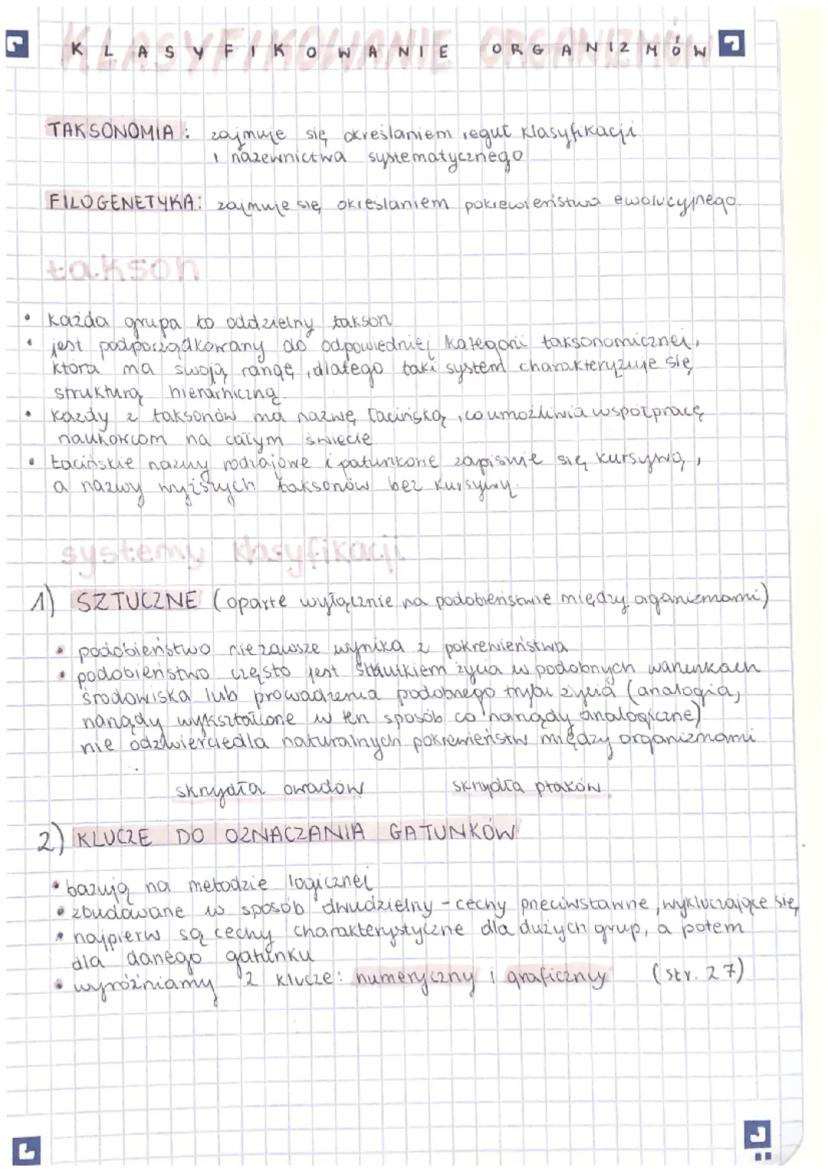 KLASYFIKOWANIE ORGANIZMÓW
TAKSONOMIA: zajmuje się określaniem reguł klasyfikacji
i nazewnictwa systematycznego
FILOGENETYKA: zajmuje się określaniem pokrewieństwa ewolucyjnego.
takson
• każda grupa to oddzielny takson
• jest podporządkowany do odpowiedniej kategorii taksonomicznej,
która ma swoją rangę, dlatego taki system charakteryzuje się
strukturą hierarhiczną.
• każdy z taksonów ma nazwę łacińską, co umożliwia współpracę
naukowcom na całym świecie
• łacińskie nazwy rodzajowe i gatunkowe zapisuje się kursywą,
a nazwy wyższych taksonów bez kursywy.
systemy klasyfikacji
1) SZTUCZNE (oparte wyłącznie na podobieństwie między organizmami)
• podobieństwo nie zawsze wynika z pokrewieństwa
• podobieństwo często jest skutkiem życia w podobnych warunkach
środowiska lub prowadzenia podobnego trybu życia (analogia,
narządy wykształcone w ten sposób co narządy analogiczne)
nie odzwierciedla naturalnych pokrewieństw między organizmami
skrzydła owadów skrzydła ptaków
2) KLUCZE DO OZNACZANIA GATUNKÓW
• bazują na metodzie logicznej
• zbudowane w sposób dwudzielny - cechy przeciwstawne, wykluczające się,
• najpierw są cechy charakterystyczne dla dużych grup, a potem
dla danego gatunku
• wyróżniamy 2 klucze: numeryczny i graficzny (str. 27)